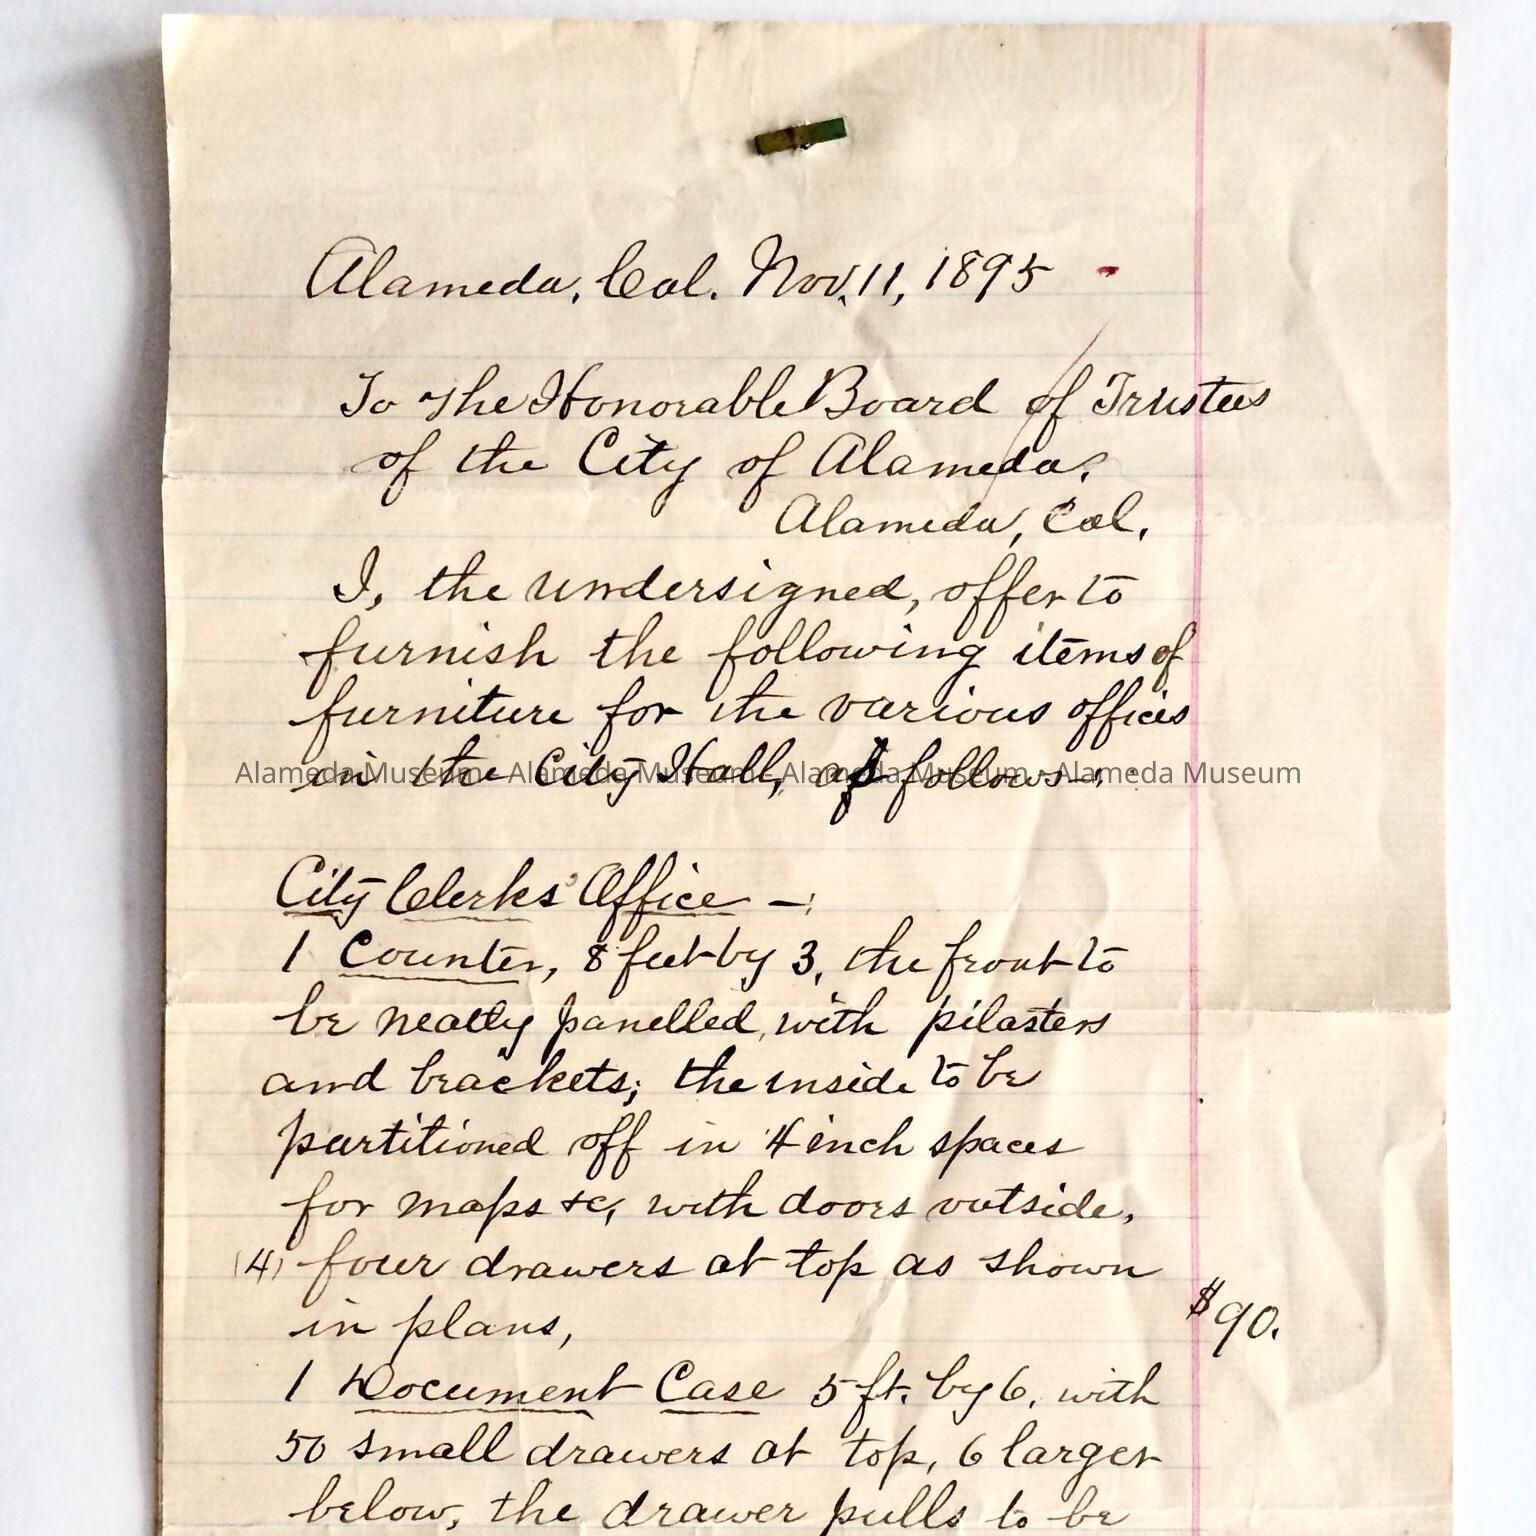 Alameda, Cal. Nov. 11, 1895
To the Honorable Board of Trustees
of the City of Alameda.
Alameda, Cal.
I, the undersigned, offer to
furnish the following items of
furniture for the various offices
in the City Hall, as follows-:
Alameda Museum - Alameda Museum - Alameda Museum - Alameda Museum
City Clerks' Office -:
1 Counter, 8 feet by 3, the front to
be neatly panelled, with pilasters
and brackets; the inside to be
partitioned off in 4 inch spaces
for maps &c, with doors outside.
(4) four drawers at top as shown
in plans,
$90.
1 Document Case 5 ft. by 6. with
50 small drawers at top, 6 larger
below, the drawer pulls to be